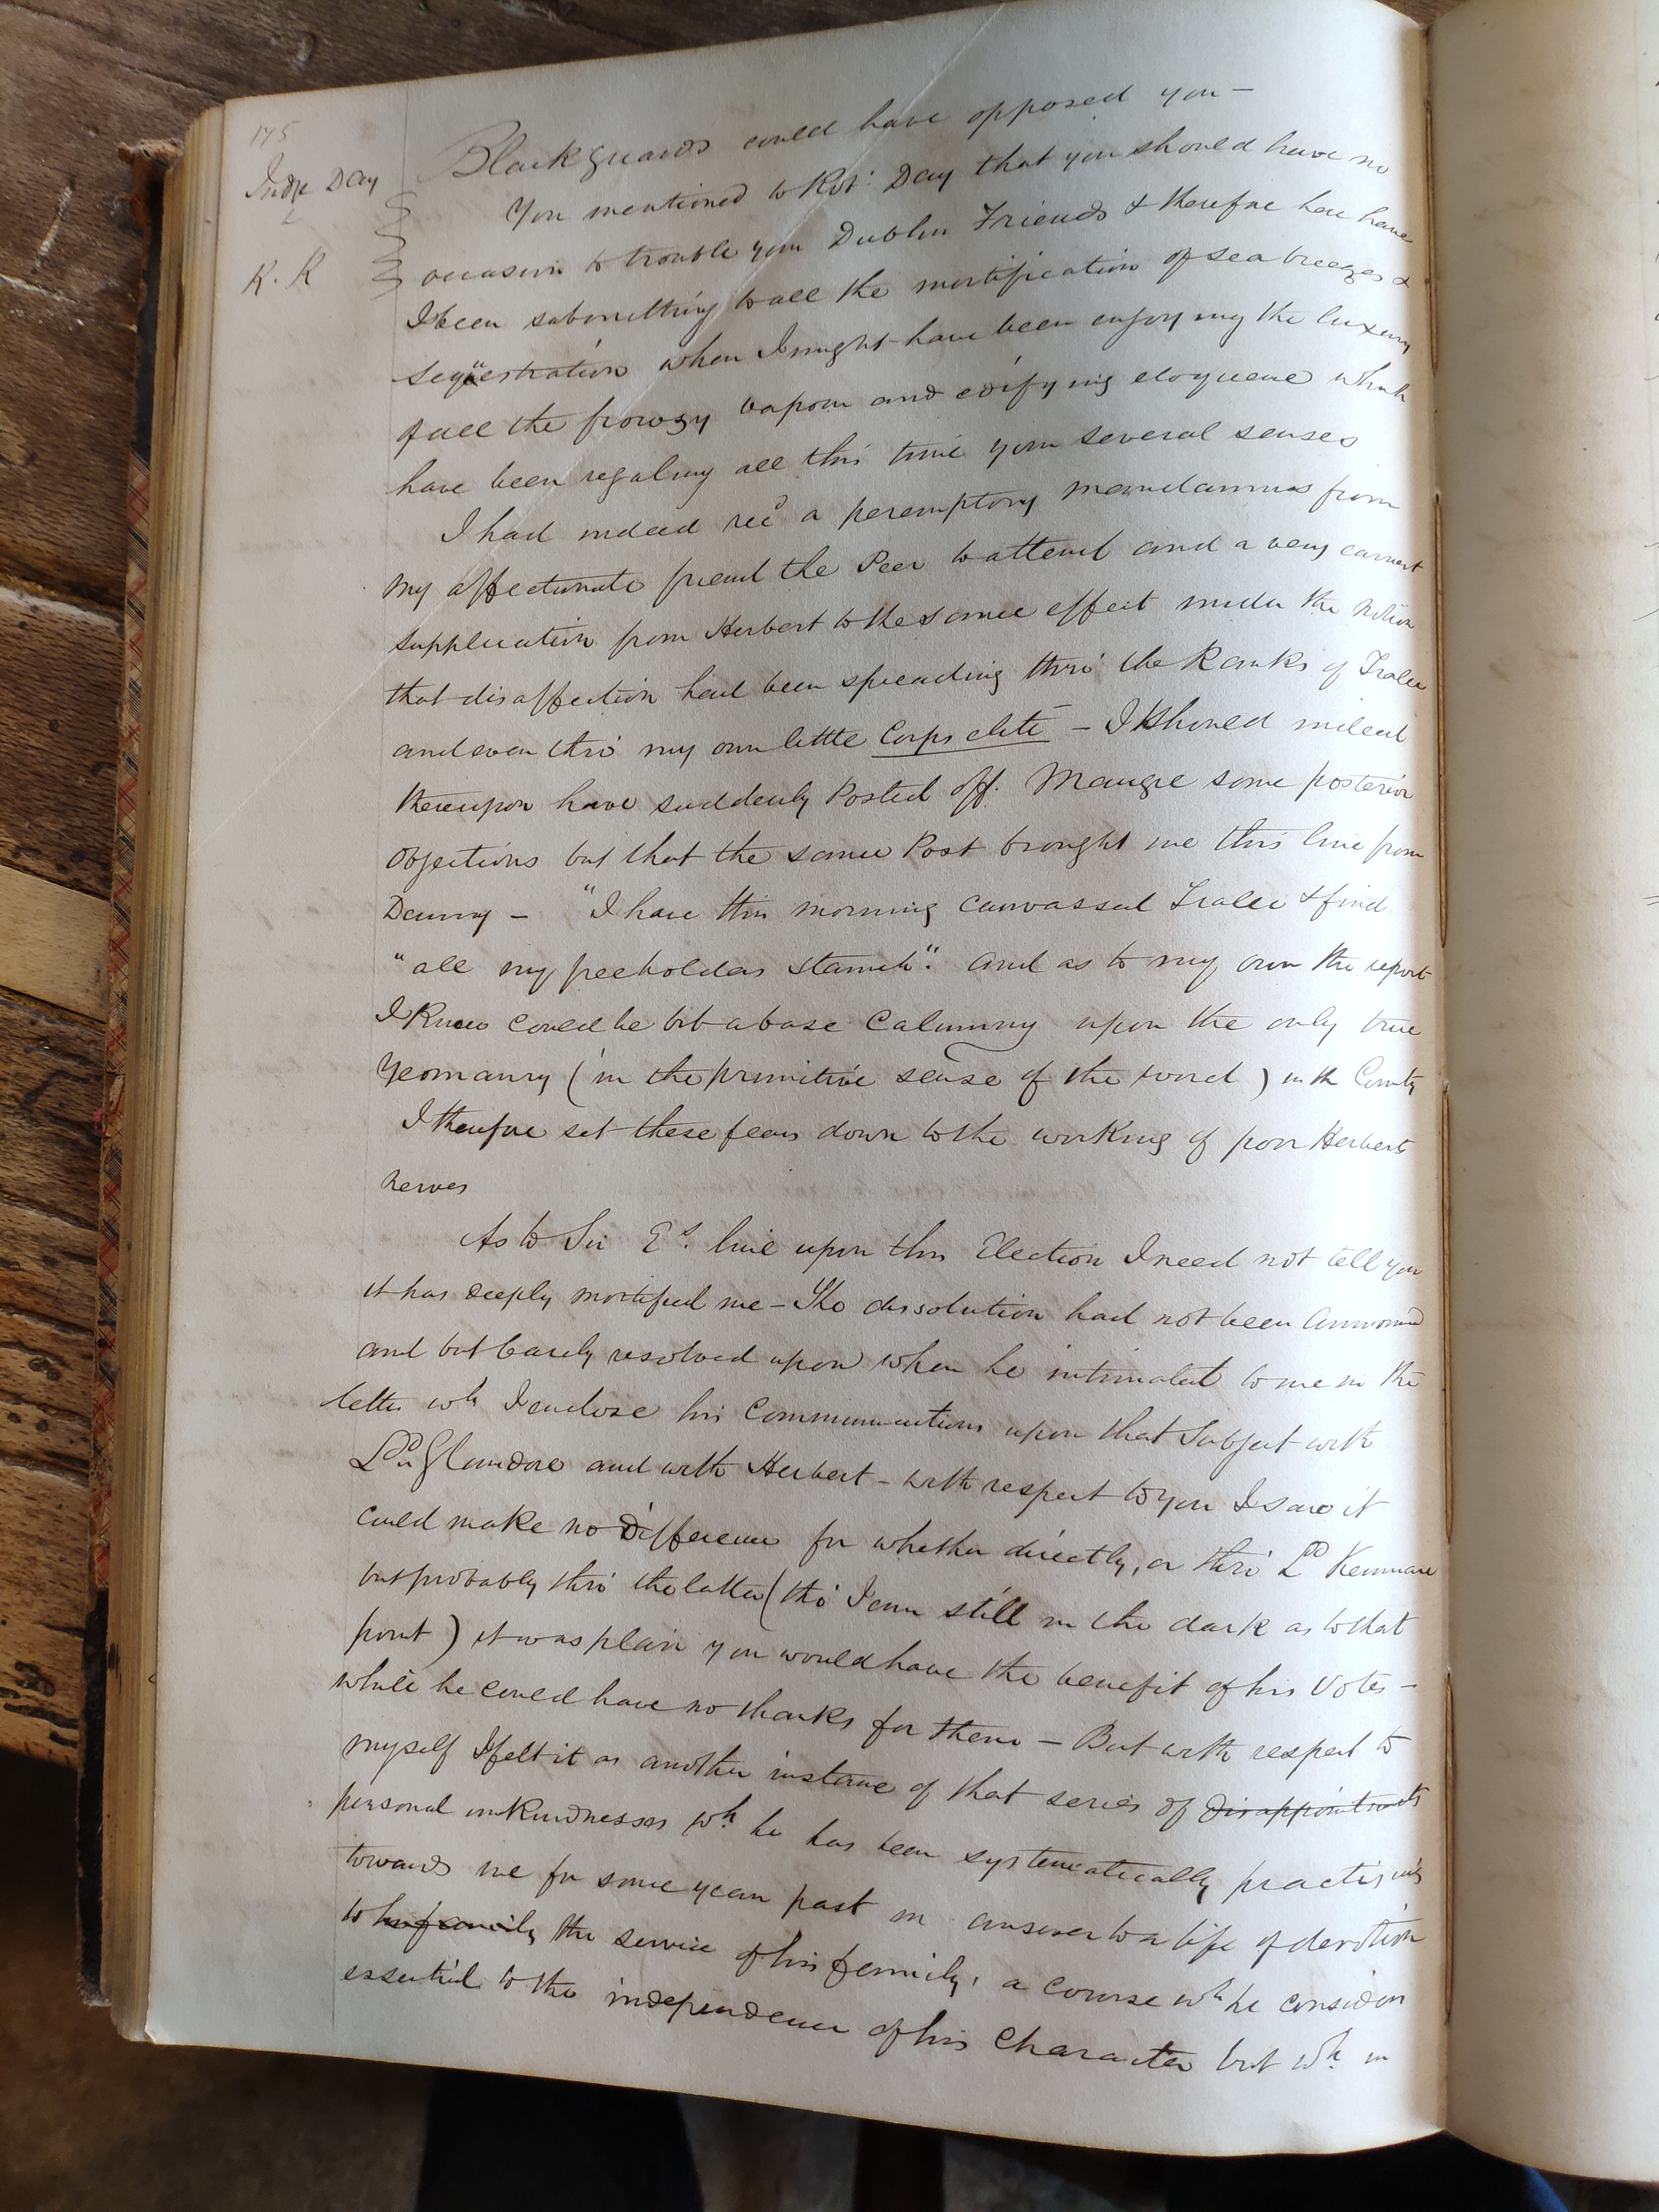 175
Judge Day
K. K
Blackguards could have opposed you —
You mentioned to Robt: Day that you should have no
occasion to trouble your Dublin Friends & therefore here have
I been submitting to all the mortification of sea breezes &
sequestration when I might have been enjoying the luxury
of all the frowzy vapour and edifying eloquence which
have been regaling all this time your several senses
I had indeed recd a peremptory mandamus from
my affectionate friend the Peer to attend and a very earnest
supplication from Herbert to the same effect under the notion
that disaffection had been spreading thro' the Ranks of Tralee
and even thro' my own little Corps elite — I should indeed
thereupon have suddenly Posted off. Maugre some posterior
objections but that the same Post brought me this line from
Denny — "I have this morning canvassed Tralee & find
"all my freeholders stanch". and as to my own the report
I knew could be but a base Calumny upon the only true
Yeomanry (in the primitive sense of the word) in the County
I therefore set these fears down to the working of poor Herberts
nerves
As to Sir Es. line upon this Election I need not tell you
it has deeply mortified me — The dissolution had not been announced
and but barely resolved upon when he intimated to me in the
letter wh I enclose his communications upon that Subject with
Ld Glandore and with Herbert — with respect to you I saw it
could make no difference for whether directly, or thro' Ld Kenmare
but probably thro' the latter (tho' I am still in the dark as to that
point) it was plain you would have the benefit of his Votes —
while he could have no thanks for them — But with respect to
myself I felt it as another instance of that series of disappointments
personal unkindnesses wh he has been systematically practising
towards me for some years past in answer to a life of devotion
to his family the service of his family, a course wh he considers
essential to the independence of his Character but wh in